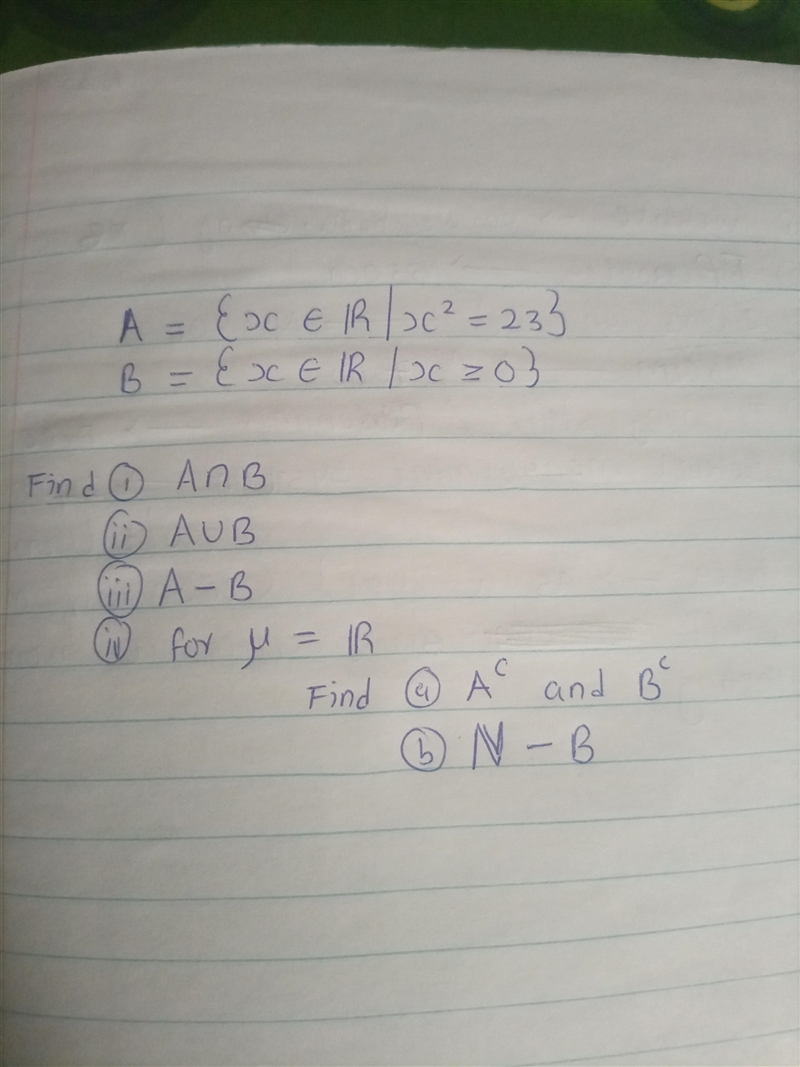 A = {x ∈ ℝ | x² = 23}
B = {x ∈ ℝ | x ≥ 0}
Find ⓘ A∩B
ⓘⓘ A∪B
ⓘⓘⓘ A – B
ⓘⓥ for μ = ℝ
Find ⓐ Aᶜ and Bᶜ
ⓑ ℕ – B